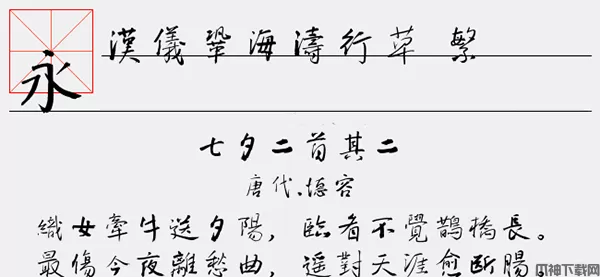 永
漢儀鞏海濤行草 繁
七夕二首其二
唐代.德容
織女牽牛送夕陽，臨看不覺鵲橋長。
最傷今夜離愁曲，遥對天涯愈斷腸
爪神下载网